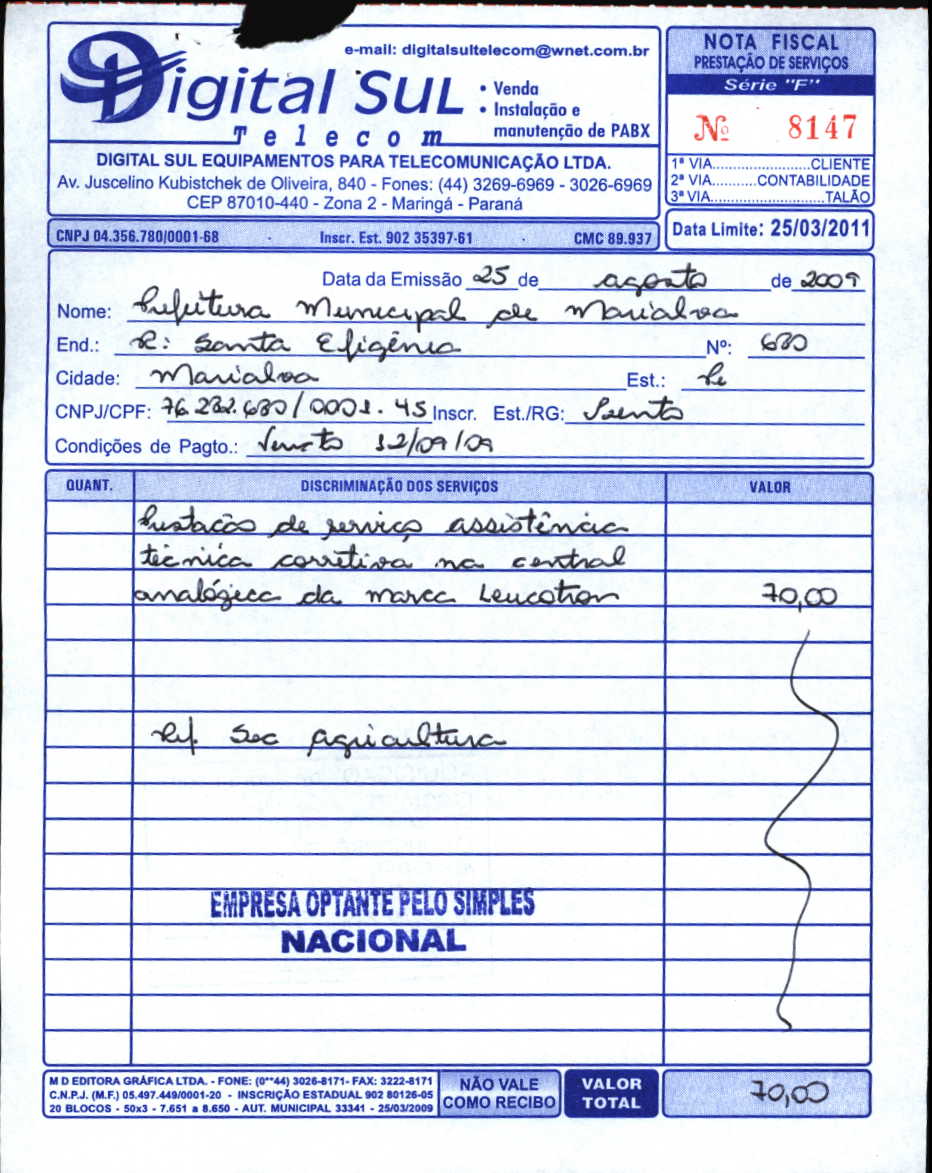 e-mail: digitalsultelecom@wnet.com.br
Digital Sul
Telecom
• Venda
• Instalação e
manutenção de PABX
DIGITAL SUL EQUIPAMENTOS PARA TELECOMUNICAÇÃO LTDA.
Av. Juscelino Kubistchek de Oliveira, 840 - Fones: (44) 3269-6969 - 3026-6969
CEP 87010-440 - Zona 2 - Maringá - Paraná
NOTA FISCAL
PRESTAÇÃO DE SERVIÇOS
Série "F"
Nº 8147
1ª VIA.......................CLIENTE
2ª VIA..........CONTABILIDADE
3ª VIA..........................TALÃO
CNPJ 04.356.780/0001-68 - Inscr. Est. 902 35397-61 - CMC 89.937
Data Limite: 25/03/2011
Data da Emissão 25 de agosto de 2009
Nome: Prefeitura Municipal de Marialva
End.: R: Santa Efigênia Nº: 680
Cidade: Marialva Est.: Pr
CNPJ/CPF: 76.282.680/0001.45 Inscr. Est./RG: Isento
Condições de Pagto.: Vencto 12/09/09
QUANT. DISCRIMINAÇÃO DOS SERVIÇOS VALOR
Prestacão de serviço assistência
técnica corretiva na central
analógica da marca Leucotron 70,00
Ref. Sec agricultura
EMPRESA OPTANTE PELO SIMPLES
NACIONAL
M D EDITORA GRÁFICA LTDA. - FONE: (0**44) 3026-8171- FAX: 3222-8171
C.N.P.J. (M.F.) 05.497.449/0001-20 - INSCRIÇÃO ESTADUAL 902 80126-05
20 BLOCOS - 50x3 - 7.651 a 8.650 - AUT. MUNICIPAL 33341 - 25/03/2009
NÃO VALE
COMO RECIBO
VALOR
TOTAL
70,00